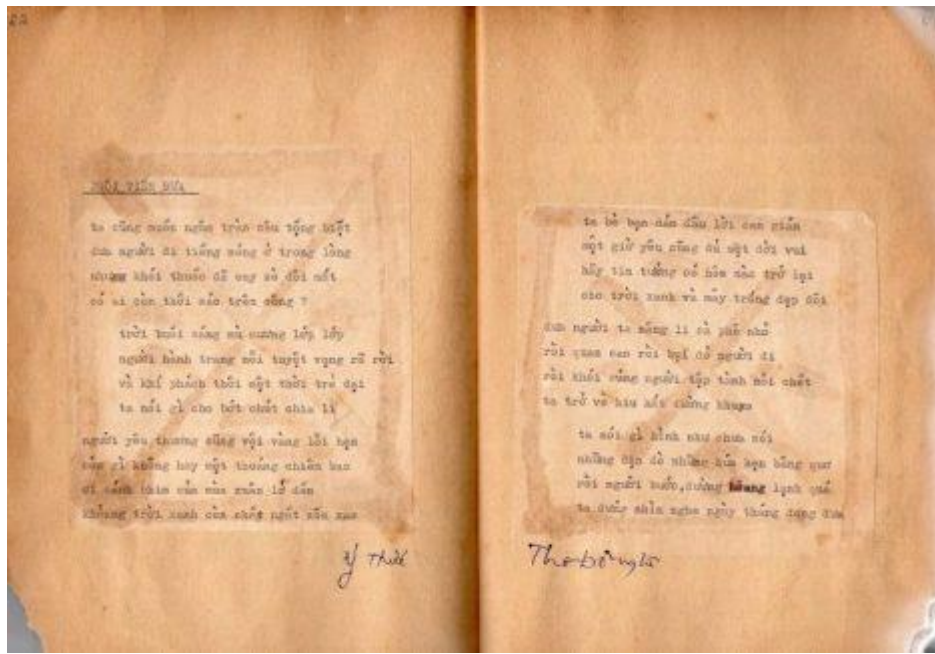 22
BUỔI TIỄN ĐƯA
ta cũng muốn ngâm trên cầu tống biệt
đưa người đi tiếng sóng ở trong lòng
nhưng khói thuốc dễ cay xè đôi mắt
có ai còn thổi sáo trên sông ?
trời buổi sáng mù sương lớp lớp
người hành trang nỗi tuyệt vọng rũ rời
và khí phách thôi một thời trẻ dại
ta nói gì cho bớt chút chia li
người yêu thương cũng vội vàng lỗi hẹn
còn gì không hay một thoáng chiêm bao
ơi cánh chim của mùa xuân lỡ dần
khoảng trời xanh còn chất ngất
Ý Thức
ta bè bạn dẫn đầu lời can gián
một giờ yêu cũng đủ một đời vui
hãy tin tưởng có hôm nào trở lại
cho trời xanh và mây trắng đẹp đôi
đưa người ta nâng li cà phê nhỏ
rồi quay rồi đó người đi
rồi khói súng người tập tành nói chết
ta trở về hiu hắt đường khuya
ta nói gì hình như chưa nói
những dặn dò những hứa hẹn bâng quơ
rồi người bước, đường hoang lạnh quá
ta đứng nhìn nghe ngày tháng đong đưa